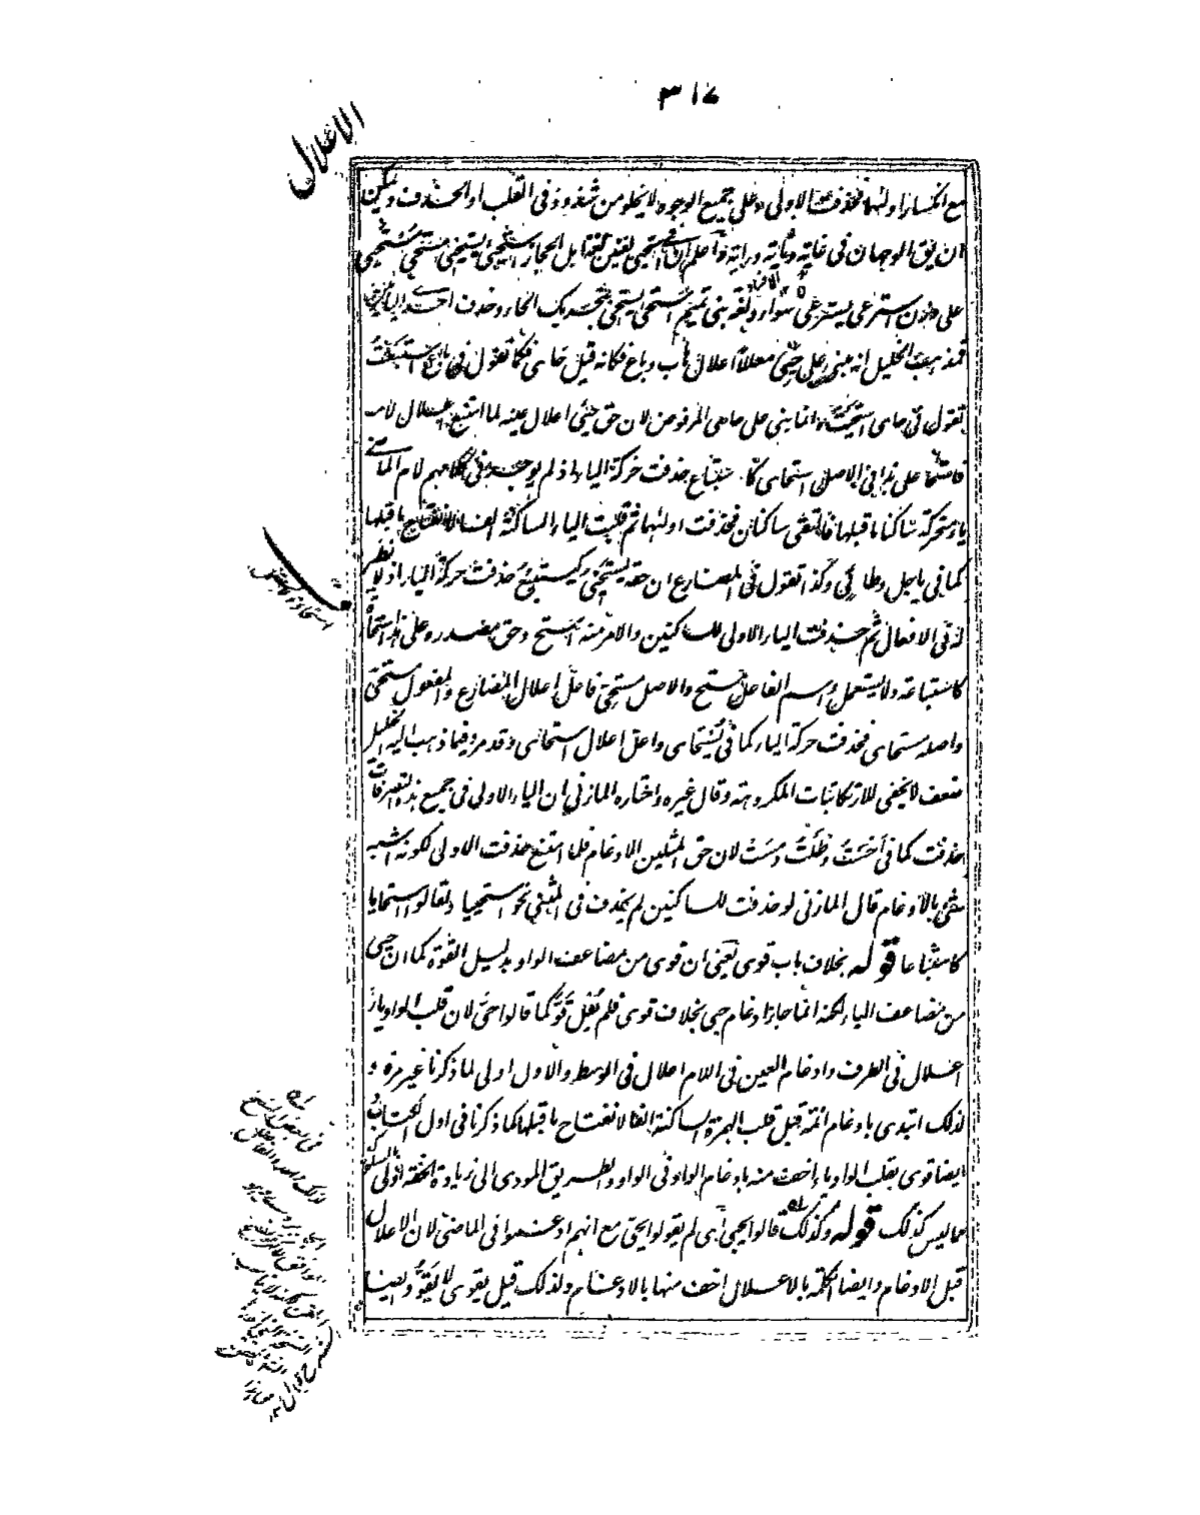 ٣١٧
الاعلال
مع انكسار اولها فحذفت الاولى وعلى جميع الوجوه لا يخلو من شذوذ فى القلب او الحذف ويمكن
ان يق الوجهان فى غاية وثاية وراية واعلم ان فى استحيى لغتين لغة اهل الحجاز استحيى يستحيى مستحى مستحيى
على وزن استرعى يسترعى سواء ولغة بنى تميم استحى يستحى بتحريك الحاء وحذف احدى اليائين
فمذهب الخليل انه مبنى على حيى معلا اعلال هاب وباع فكانه قيل حاى فكما تقول فى باع استبعت
تقول فى حاى استحيت وانما بنى على حاى المرفوض لان حق حيى اعلال عينه لما امتنع اعلال لامه
فاستحى على هذا فى الاصل استحاى كاستباع حذفت حركة الياء اذ لم يوجد فى كلامهم لام الماضى
ياء متحركة ساكنا ما قبلها فالتقى ساكنان فحذفت اولهما ثم قلبت الياء الساكنة الفا لانفتاح ما قبلها
كما فى ياجل وطائى وكذا تقول فى المضارع ان حقه يستحيى كيستبيع حذفت حركة الياء اذ لا نظير
له فى الافعال ثم حذفت الياء الاولى للساكنين والامر منه استح وحق مصدره على هذا استحاة
كاستباعة ولا يستعمل واسم الفاعل مستح والاصل مستحيى فاعل اعلال المضارع والمفعول مستحى
واصله مستحاى فحذفت حركة الياء كما فى يستحاى واعل اعلال استحاى وقد مر وفيما ذهب اليه الخليل
ضعف لا يخفى للارتكابات المكروهة وقال غيره واختاره المازنى ان الياء الاولى فى جميع هذه التصرفات
حذفت كما فى احست وظلت ومست لان حق المثلين الادغام فلما امتنع حذفت الاولى لكونه اشبه
شئ بالادغام قال المازنى لو حذفت للساكنين لم يحذف فى المثنى نحو استحييا ولقالوا استحايا
كاستباعا قوله بخلاف باب قوى يعنى ان قوى من مضاعف الواو بدليل القوة كما ان حيى
من مضاعف الياء لكنه انما جاز ادغام حيى بخلاف قوى فلم يقل قو كما قالوا حى لان قلب الواو ياء
اعلال فى الطرف وادغام العين فى اللام اعلال فى الوسط والاول اولى لما ذكرنا غير مرة و
لذلك ابتدى بادغام ائمة قبل قلب الهمزة الساكنة الفا لانفتاح ما قبلها كما ذكرنا فى اول الكتاب
ايضا قوى بقلب الواو ياء اخف منه بادغام الواو فى الواو والطريق المودى الى زيادة الخفة اولى بالسلوك
مما ليس كذلك قوله وكذلك قالوا يحيى اى لم يقولوا يحى مع انهم ادغموا فى الماضى لان الاعلال
قبل الادغام وايضا الكلمة بالاعلال اخف منها بالادغام ولذلك قيل يقوى لا يقو وايضا